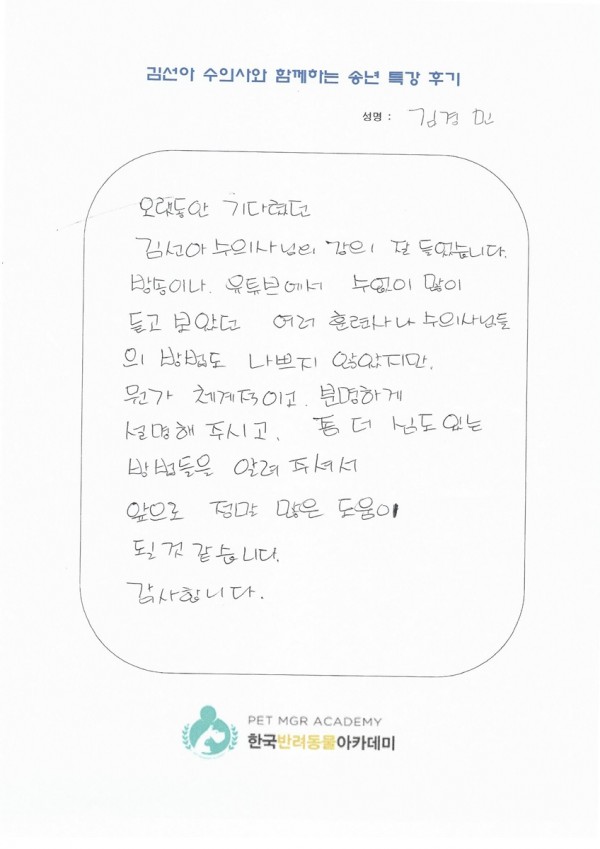 김선아 수의사와 함께하는 송년 특강 후기
성명 : 김경민
오랫동안 기다렸던
김선아수의사님의 강의 잘 들었습니다.
방송이나. 유튜브에서 수없이 많이
듣고 보았던 여러 훈련사나 수의사님들
의 방법도 나쁘지 않았지만,
뭔가 체계적이고. 분명하게
설명해 주시고, 좀 더 심도있는
방법들을 알려 주셔서
앞으로 정말 많은 도움이
될것 같습니다.
감사합니다.
PET MGR ACADEMY
한국반려동물아카데미